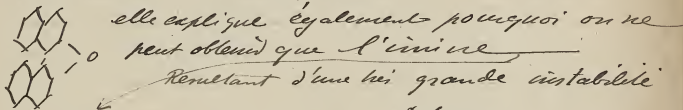 elle explique également pourquoi on ne
peut obtenir que l'imine
O
Résultant d'une très grande instabilité